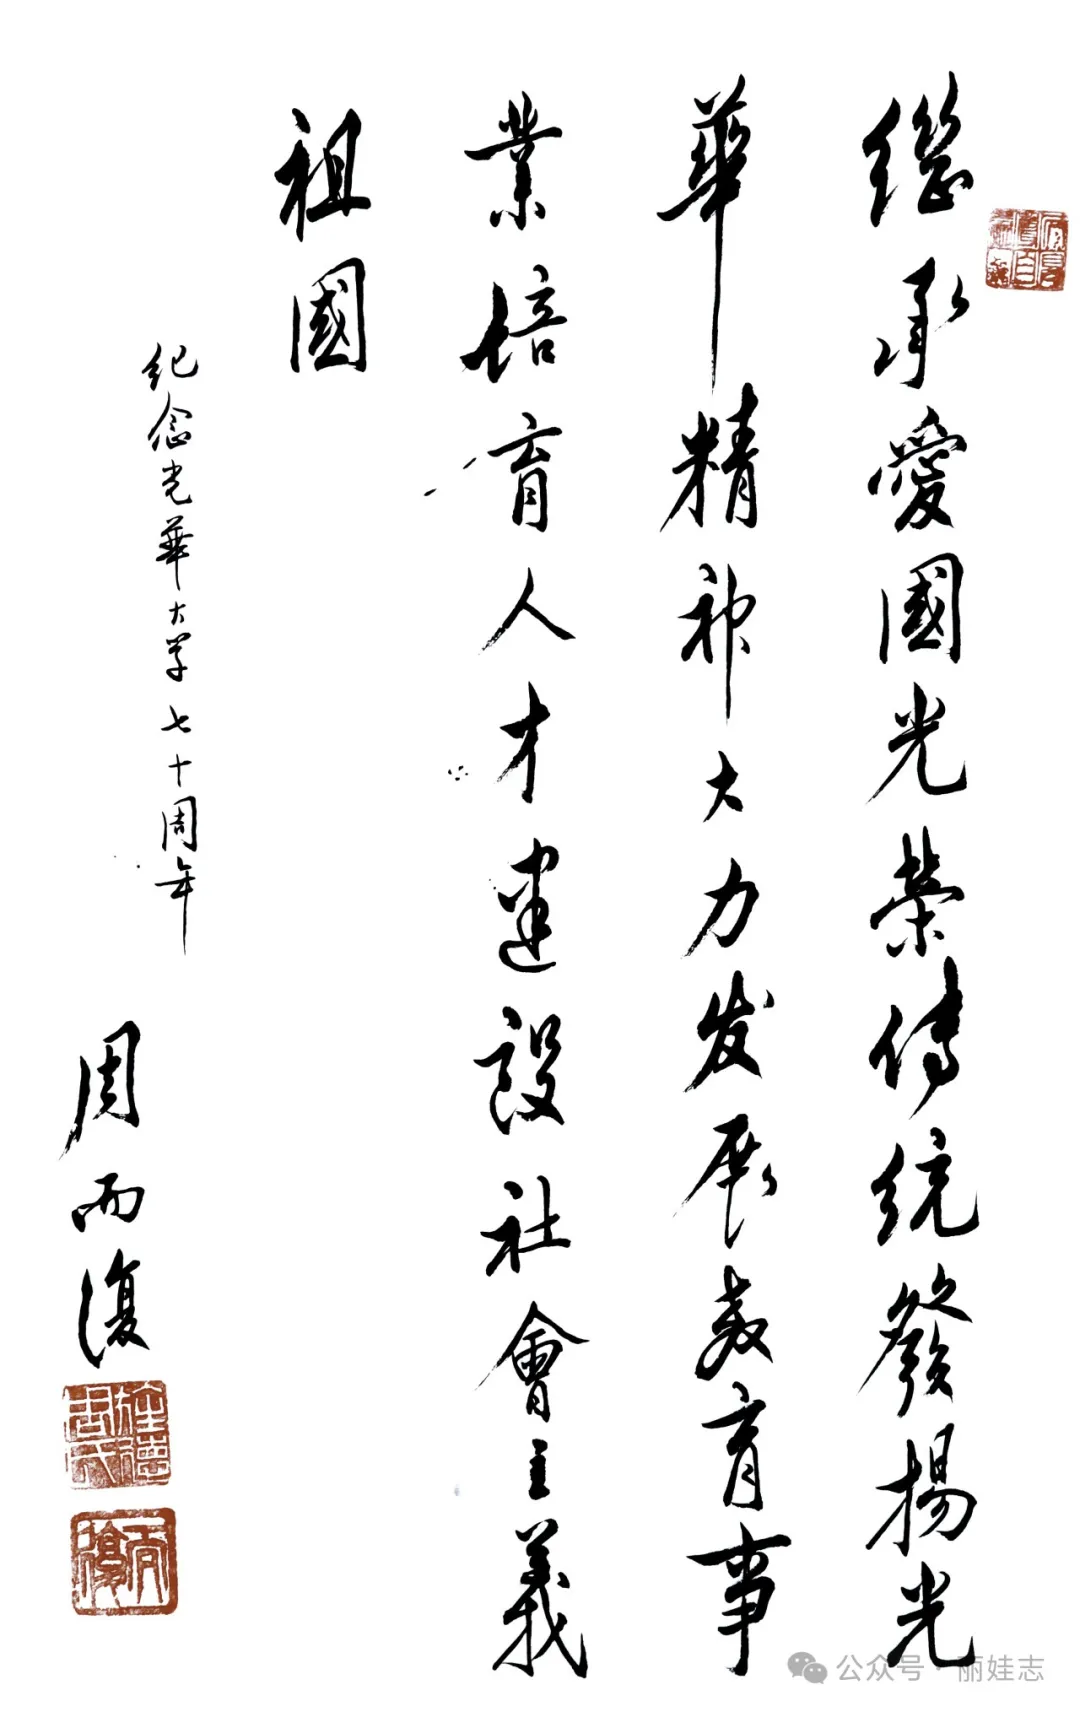 繼承愛國光榮傳統發揚光
華精神大力发展教育事
業培育人才建設社會主義
祖國
纪念光華大学七十周年
周而復
公众号·丽娃志